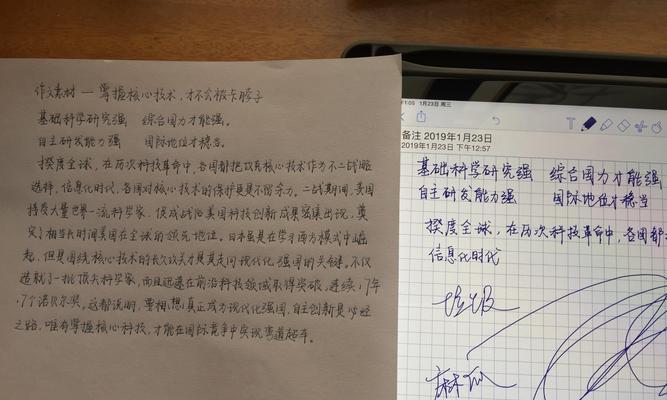 作文素材—掌握核心技术，才不会被卡脖子
基础科学研究强 综合国力才能强。
自主研发能力强 国际地位才稳当。
揆度全球，在历次科技革命中，各国都把攻克核心技术作为不二战略
选择，信息化时代，各国对核心技术的保护更是不留余力。二战期间，美国
持续大量世界一流科学家，促成战后美国科技创新成果密集出现，奠
实了相当长时间美国在全球的领先地位。日本虽是在学习西方模式中崛
起，但是围绕核心技术的长久攻关力是其走向现代化强国的关键。不仅
造就了一批顶尖科学家，而且迅速在前沿科技领域取得突破，连续17年
17个诺贝尔奖。这都说明，要相想真正成为现代化强国，自主创新是必经
之路，唯有掌握核心科技，才能在国际竞争中实现弯道超车。
1:05 1月23日 周三
备注 2019年1月23日
2019年1月23日 下午12:57
T
基础科学研究强 综合国力才能强
自主研发能力强 国际地位才稳当
揆度全球，在历次科技革命中，各国都
信息化时代
垃圾
麻瓜